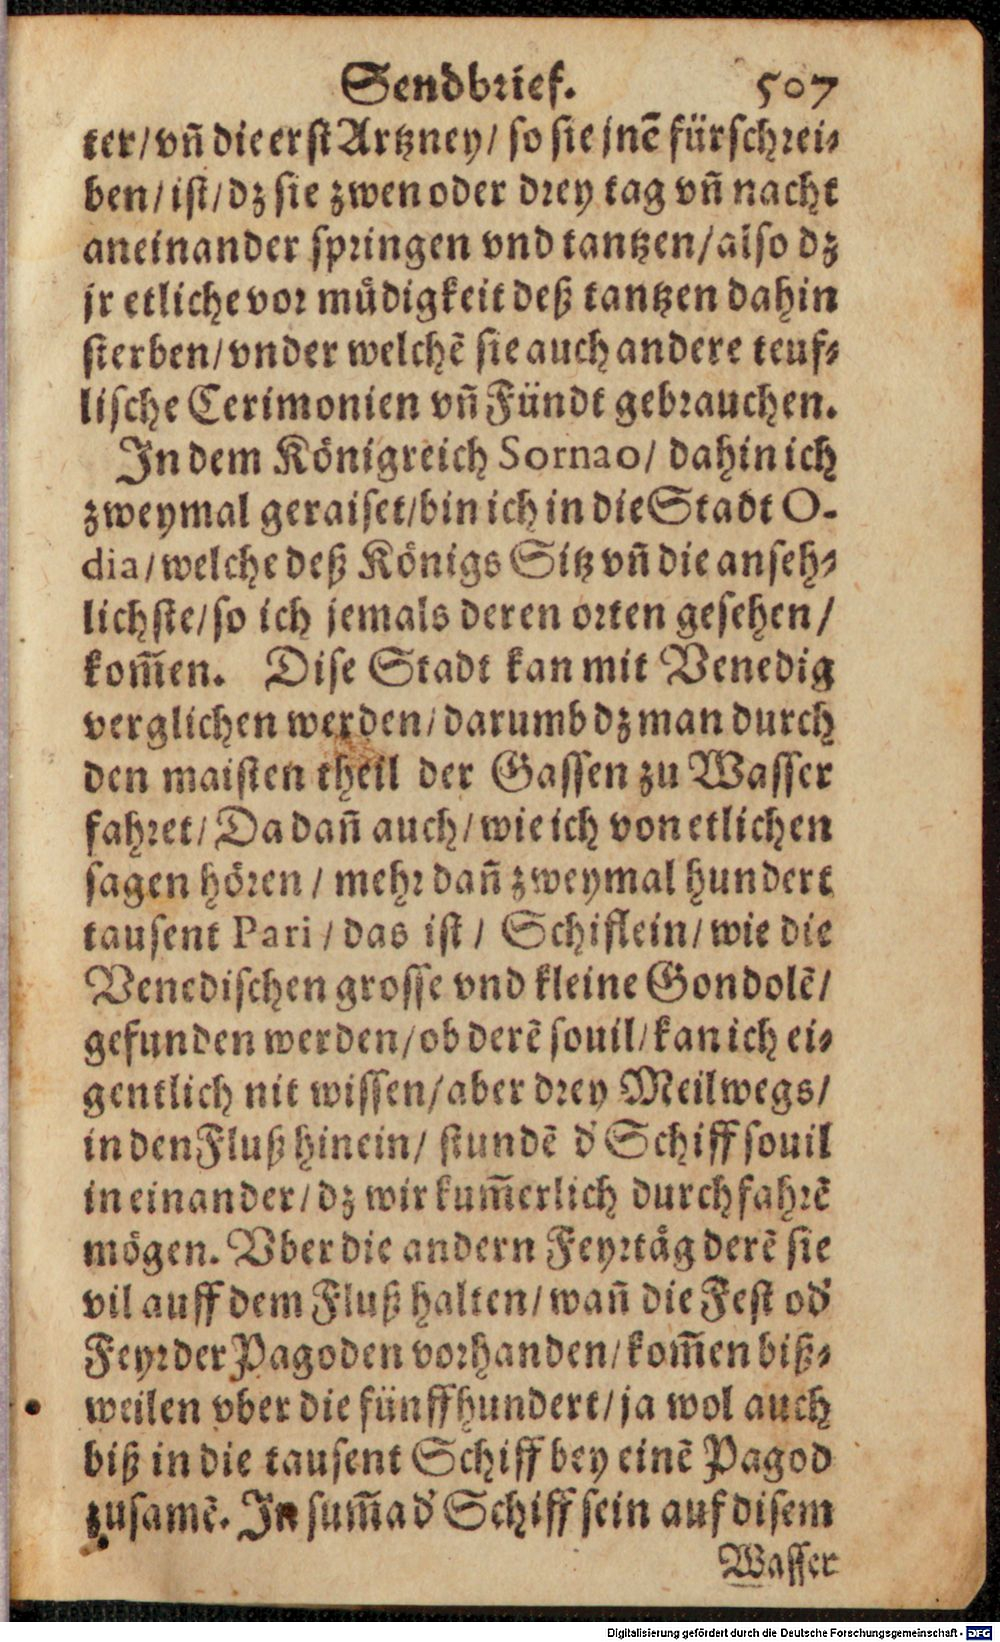 Sendbrief. 507
ter/ vñ die erst Artzney/ so sie jnẽ fürschrei⸗
ben/ ist/ dz sie zwen oder drey tag vñ nacht
aneinander springen vnd tantzen/ also dz
jr etliche vor müdigkeit deß tantzen dahin
sterben/ vnder welchẽ sie auch andere teuf⸗
lische Cerimonien vñ Fündt gebrauchen.
In dem Königreich Sornao/ dahin ich
zweymal geraiset/ bin ich in die Stadt O-
dia/ welche deß Königs Sitz vñ die anseh⸗
lichste/ so ich jemals deren orten gesehen/
kom̃en. Dise Stadt kan mit Venedig
verglichen werden/ darumb dz man durch
den maisten theil der Gassen zu Wasser
fahret/ Da dañ auch/ wie ich von etlichen
sagen hören/ mehr dañ zweymal hundert
tausent Pari/ das ist/ Schiflein/ wie die
Venedischen grosse vnd kleine Gondolẽ/
gefunden werden/ ob derẽ souil/ kan ich ei⸗
gentlich nit wissen/ aber drey Meil wegs/
in den Fluß hinein/ stundẽ d' Schiff souil
in einander/ dz wir kum̃erlich durchfahrẽ
mögen. Vber die andern Feyrtäg derẽ sie
vil auff dem Fluß halten/ wañ die Fest od'
Feyr der Pagoden vorhanden/ kom̃en biß⸗
weilen vber die fünffhundert/ ja wol auch
biß in die tausent Schiff bey einẽ Pagod
zusamẽ. In sum̃a d' Schiff sein auf disem
Wasser
Digitalisierung gefördert durch die Deutsche Forschungsgemeinschaft - DFG